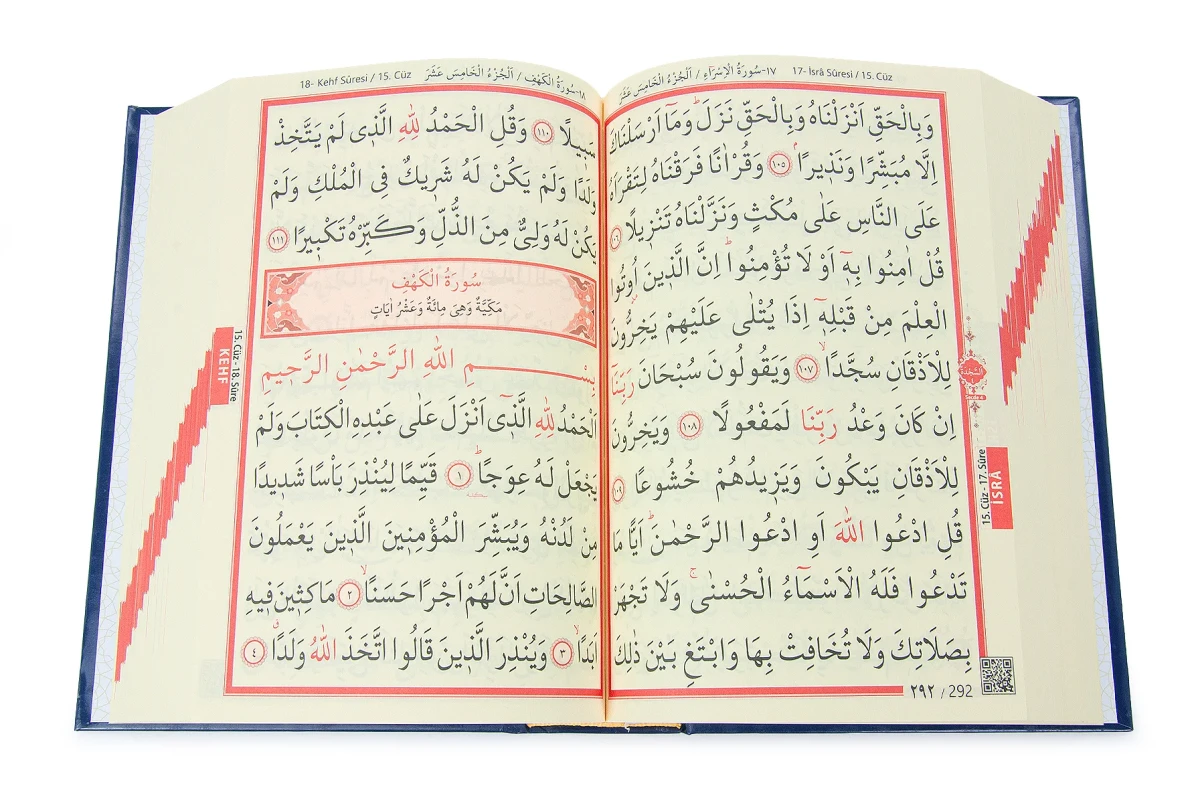 ١٧-سُورَةُ الْاِسْرَاءِ / اَلْجُزْءُ الْخَامِسَ عَشَرَ 17- İsrâ Sûresi / 15. Cüz
وَبِالْحَقِّ اَنْزَلْنَاهُ وَبِالْحَقِّ نَزَلَۜ وَمَٓا اَرْسَلْنَاكَ
اِلَّا مُبَشِّرًا وَنَذ۪يرًاۢ ﴿١٠٥﴾ وَقُرْاٰنًا فَرَقْنَاهُ لِتَقْرَاَهُ
عَلَى النَّاسِ عَلٰى مُكْثٍ وَنَزَّلْنَاهُ تَنْز۪يلًا ﴿١٠٦﴾
قُلْ اٰمِنُوا بِه۪ٓ اَوْ لَا تُؤْمِنُواۜ اِنَّ الَّذ۪ينَ اُو۫تُوا
الْعِلْمَ مِنْ قَبْلِه۪ٓ اِذَا يُتْلٰى عَلَيْهِمْ يَخِرُّونَ
لِلْاَذْقَانِ سُجَّدًاۙ ﴿١٠٧﴾ وَيَقُولُونَ سُبْحَانَ رَبِّنَٓا
اِنْ كَانَ وَعْدُ رَبِّنَا لَمَفْعُولًا ﴿١٠٨﴾ وَيَخِرُّونَ
لِلْاَذْقَانِ يَبْكُونَ وَيَز۪يدُهُمْ خُشُوعًا ﴿١٠٩﴾
قُلِ ادْعُوا اللّٰهَ اَوِ ادْعُوا الرَّحْمٰنَۜ اَيًّا مَا
تَدْعُوا فَلَهُ الْاَسْمَٓاءُ الْحُسْنٰىۚ وَلَا تَجْهَرْ
بِصَلَاتِكَ وَلَا تُخَافِتْ بِهَا وَابْتَغِ بَيْنَ ذٰلِكَ
٢٩٢ / 292
اَلسَّجْدَة
Secde 4
15. Cüz - 17. Sûre
İSRÂ
18- Kehf Sûresi / 15. Cüz ١٨-سُورَةُ الْكَهْفِ / اَلْجُزْءُ الْخَامِسَ عَشَرَ
سَب۪يلًا ﴿١١٠﴾ وَقُلِ الْحَمْدُ لِلّٰهِ الَّذ۪ى لَمْ يَتَّخِذْ
وَلَدًا وَلَمْ يَكُنْ لَهُ شَر۪يكٌ فِى الْمُلْكِ وَلَمْ
يَكُنْ لَهُ وَلِىٌّ مِنَ الذُّلِّ وَكَبِّرْهُ تَكْب۪يرًا ﴿١١١﴾
سُورَةُ الْكَهْفِ
مَكِّيَّةٌ وَهِىَ مِائَةٌ وَعَشْرُ اٰيَاتٍ
بِسْــــــــمِ اللّٰهِ الرَّحْمٰنِ الرَّح۪يمِ
اَلْحَمْدُ لِلّٰهِ الَّذ۪ٓى اَنْزَلَ عَلٰى عَبْدِهِ الْكِتَابَ وَلَمْ
يَجْعَلْ لَهُ عِوَجًاۜ ﴿١﴾ قَيِّمًا لِيُنْذِرَ بَأْسًا شَد۪يدًا
مِنْ لَدُنْهُ وَيُبَشِّرَ الْمُؤْمِن۪ينَ الَّذ۪ينَ يَعْمَلُونَ
الصَّالِحَاتِ اَنَّ لَهُمْ اَجْرًا حَسَنًاۙ ﴿٢﴾ مَاكِث۪ينَ ف۪يهِ
اَبَدًاۙ ﴿٣﴾ وَيُنْذِرَ الَّذ۪ينَ قَالُوا اتَّخَذَ اللّٰهُ وَلَدًاۗ ﴿٤﴾
15. Cüz - 18. Sûre
KEHF